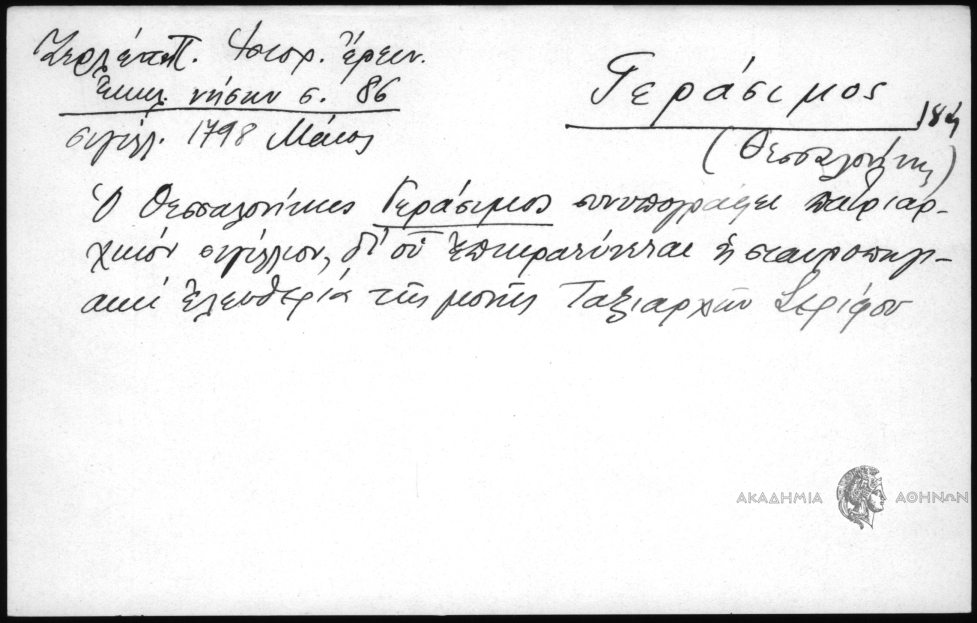 Ζερλέντ Π. Ἱστορ. Ἔρευν.
Ἐκκλ. νήσων σ. 86
σιγίλλ. 1798 Μάιος
Γεράσιμος
(Θεσσαλονίκης)
Ὁ Θεσσαλονίκης Γεράσιμος συνυπογράφει πατριαρ-
χικόν σιγίλλιον, δι' οὗ ἐπικρατύνεται ἡ σταυροπηγι-
ακή ἐλευθερία τῆς μονῆς Ταξιαρχῶν Σερίφου
ΑΚΑΔΗΜΙΑ ΑΘΗΝΩΝ